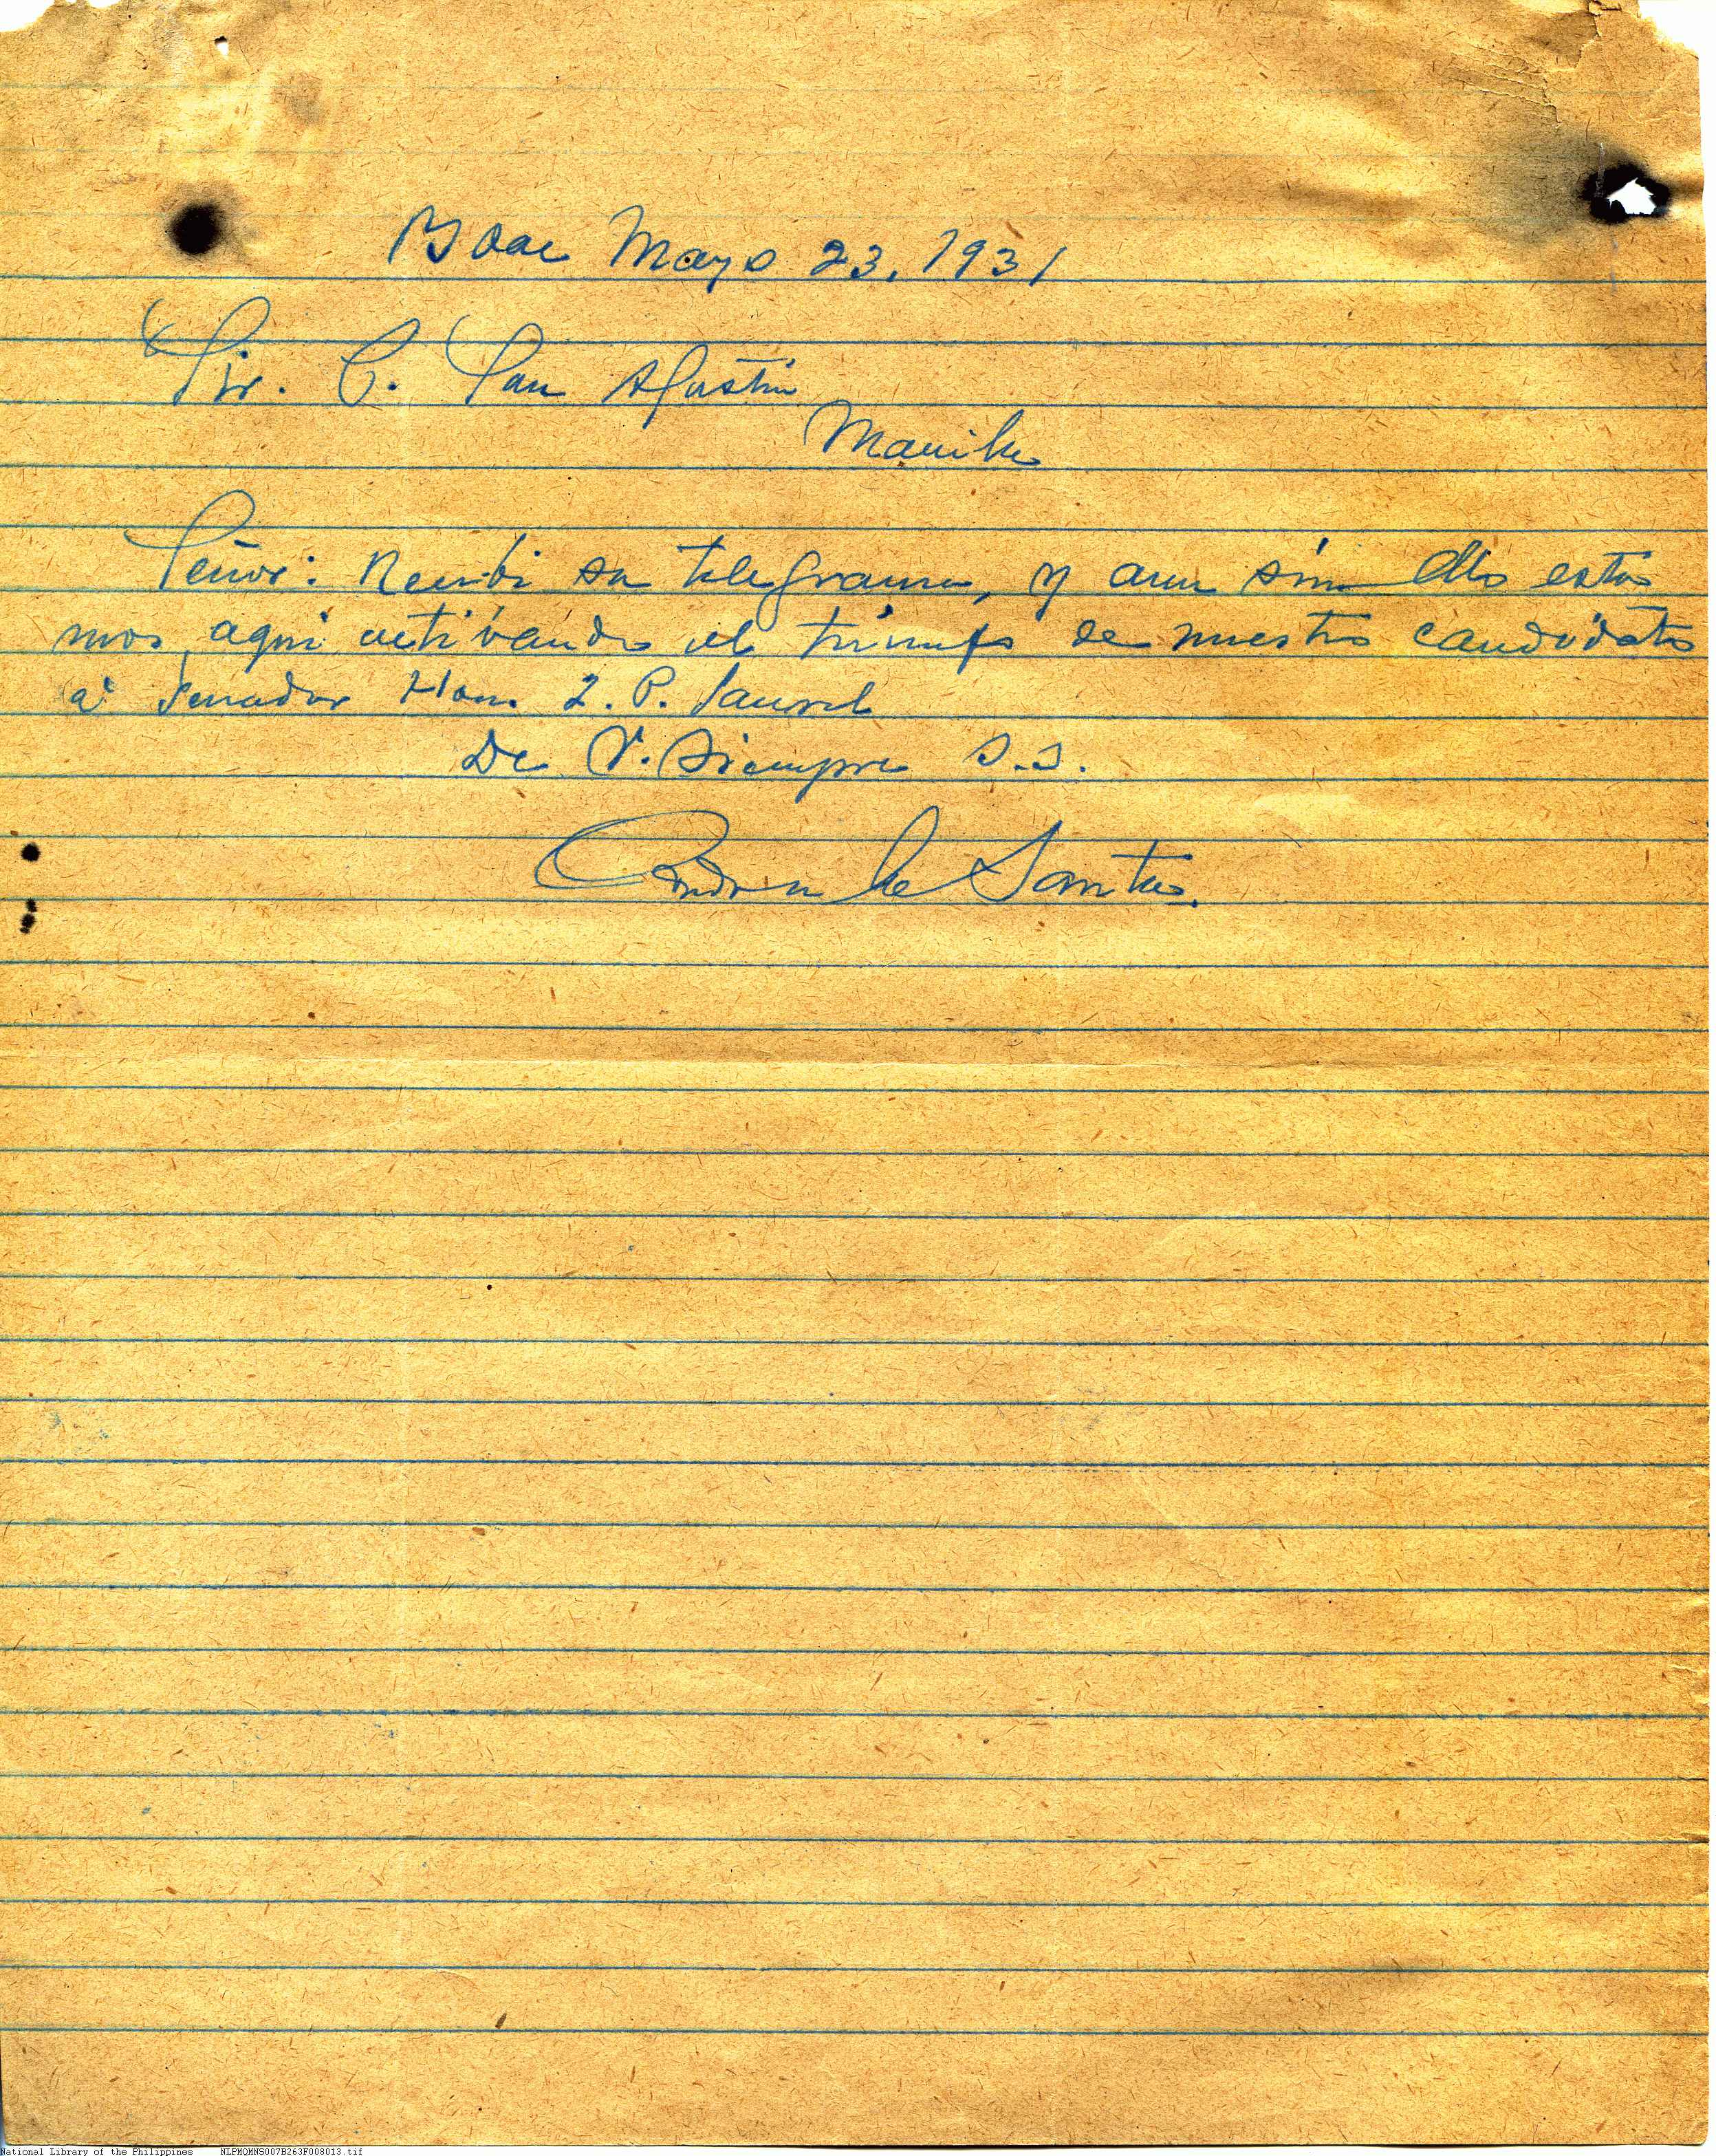 Boac Mayo 23, 1931
Sr. C. San Agustin
Manila
Señor: Recibi su telegrama, y aun sin ello esta
mos aqui activando el triunfo de nuestro candidato
á Senador Hon. J. P. Laurel
De V. siempre S.S.
de Santos.
National Library of the Philippines NLPMQMNS007B263F008013.tif